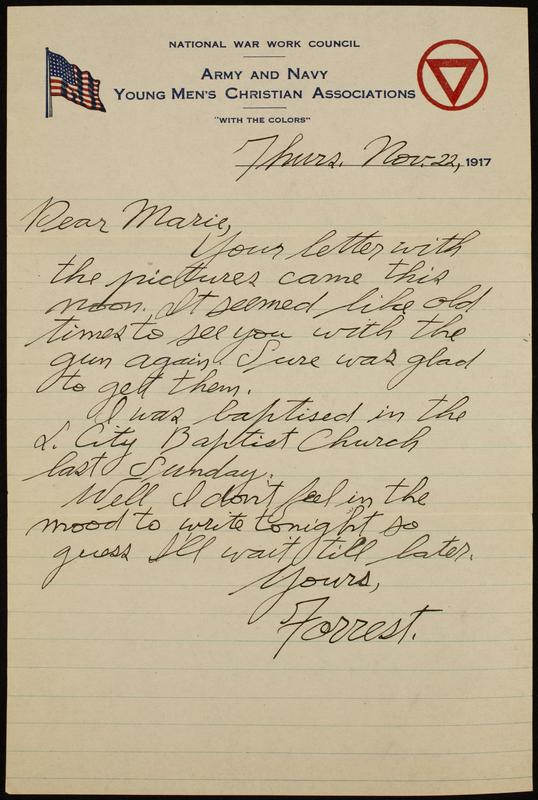 NATIONAL WAR WORK COUNCIL
ARMY AND NAVY
YOUNG MEN'S CHRISTIAN ASSOCIATIONS
"WITH THE COLORS"
Thurs. Nov. 22, 1917
Dear Marie,
Your letter with
the pictures came this
noon. It seemed like old
times to see you with the
gun again. Sure was glad
to get them.
I was baptised in the
L. City Baptist Church
last Sunday.
Well I don't feel in the
mood to write tonight so
guess I'll wait till later.
Yours,
Forrest.